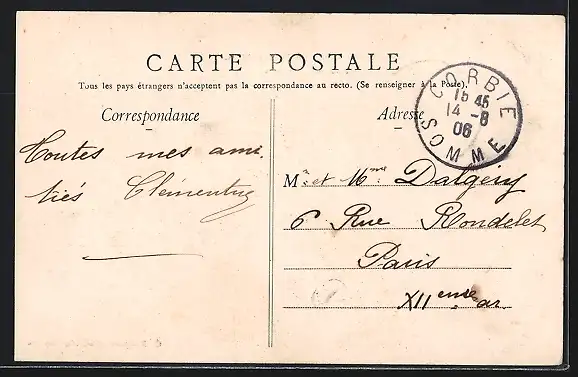 CARTE POSTALE
Tous les pays étrangers n'acceptent pas la correspondance au recto. (Se renseigner à la Poste).
Correspondance
Adresse
CORBIE
15 45
14 -8
06
SOMME
Toutes mes ami.
tiés
Mr. et Mme Dalgéry
6 Rue Rondelet
Paris
XII eme ar